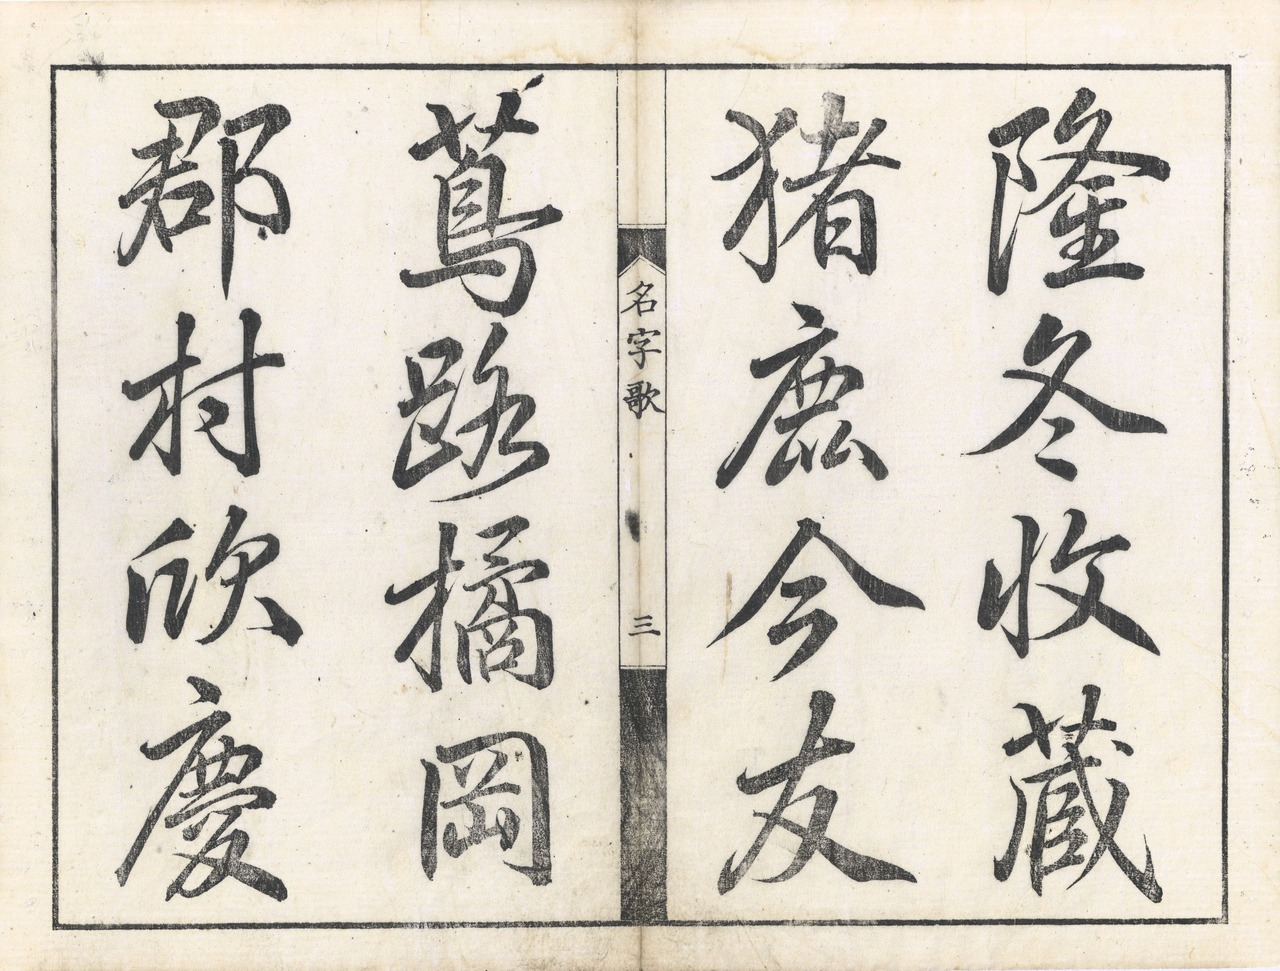 隆冬收蔵
猪鹿今友
名字歌
三
蔦路橘岡
郡村欣慶